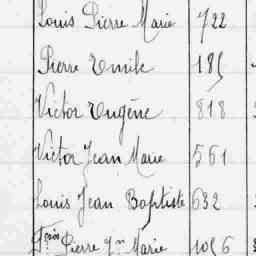 Louis Pierre Marie 722
Pierre Emile 185
Victor Eugène 818
Victor Jean Marie 561
Louis Jean Baptiste 632
Fçois Pierre Jn Marie 1056